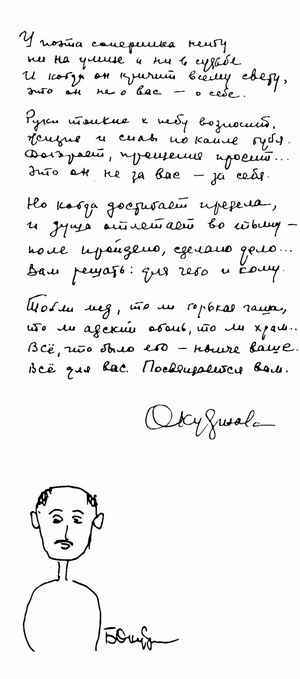 У поэта соперника нету
ни на улице и ни в судьбе
И когда он кричит всему свету,
это он не о вас — о себе.
Руки тонкие к небу возносит,
жизнь и силы по капле губя.
Догорает, прощения просит...
Это он не за вас — за себя.
Но когда достигает предела,
и душа отлетает во тьму —
поле пройдено, сделано дело...
Вам решать: для чего и кому.
То ли мед, то ли горькая чаша,
то ли адский огонь, то ли храм..
Всё, что было его — нынче ваше.
Всё для вас. Посвящается вам.
Окуджава
БОкудж